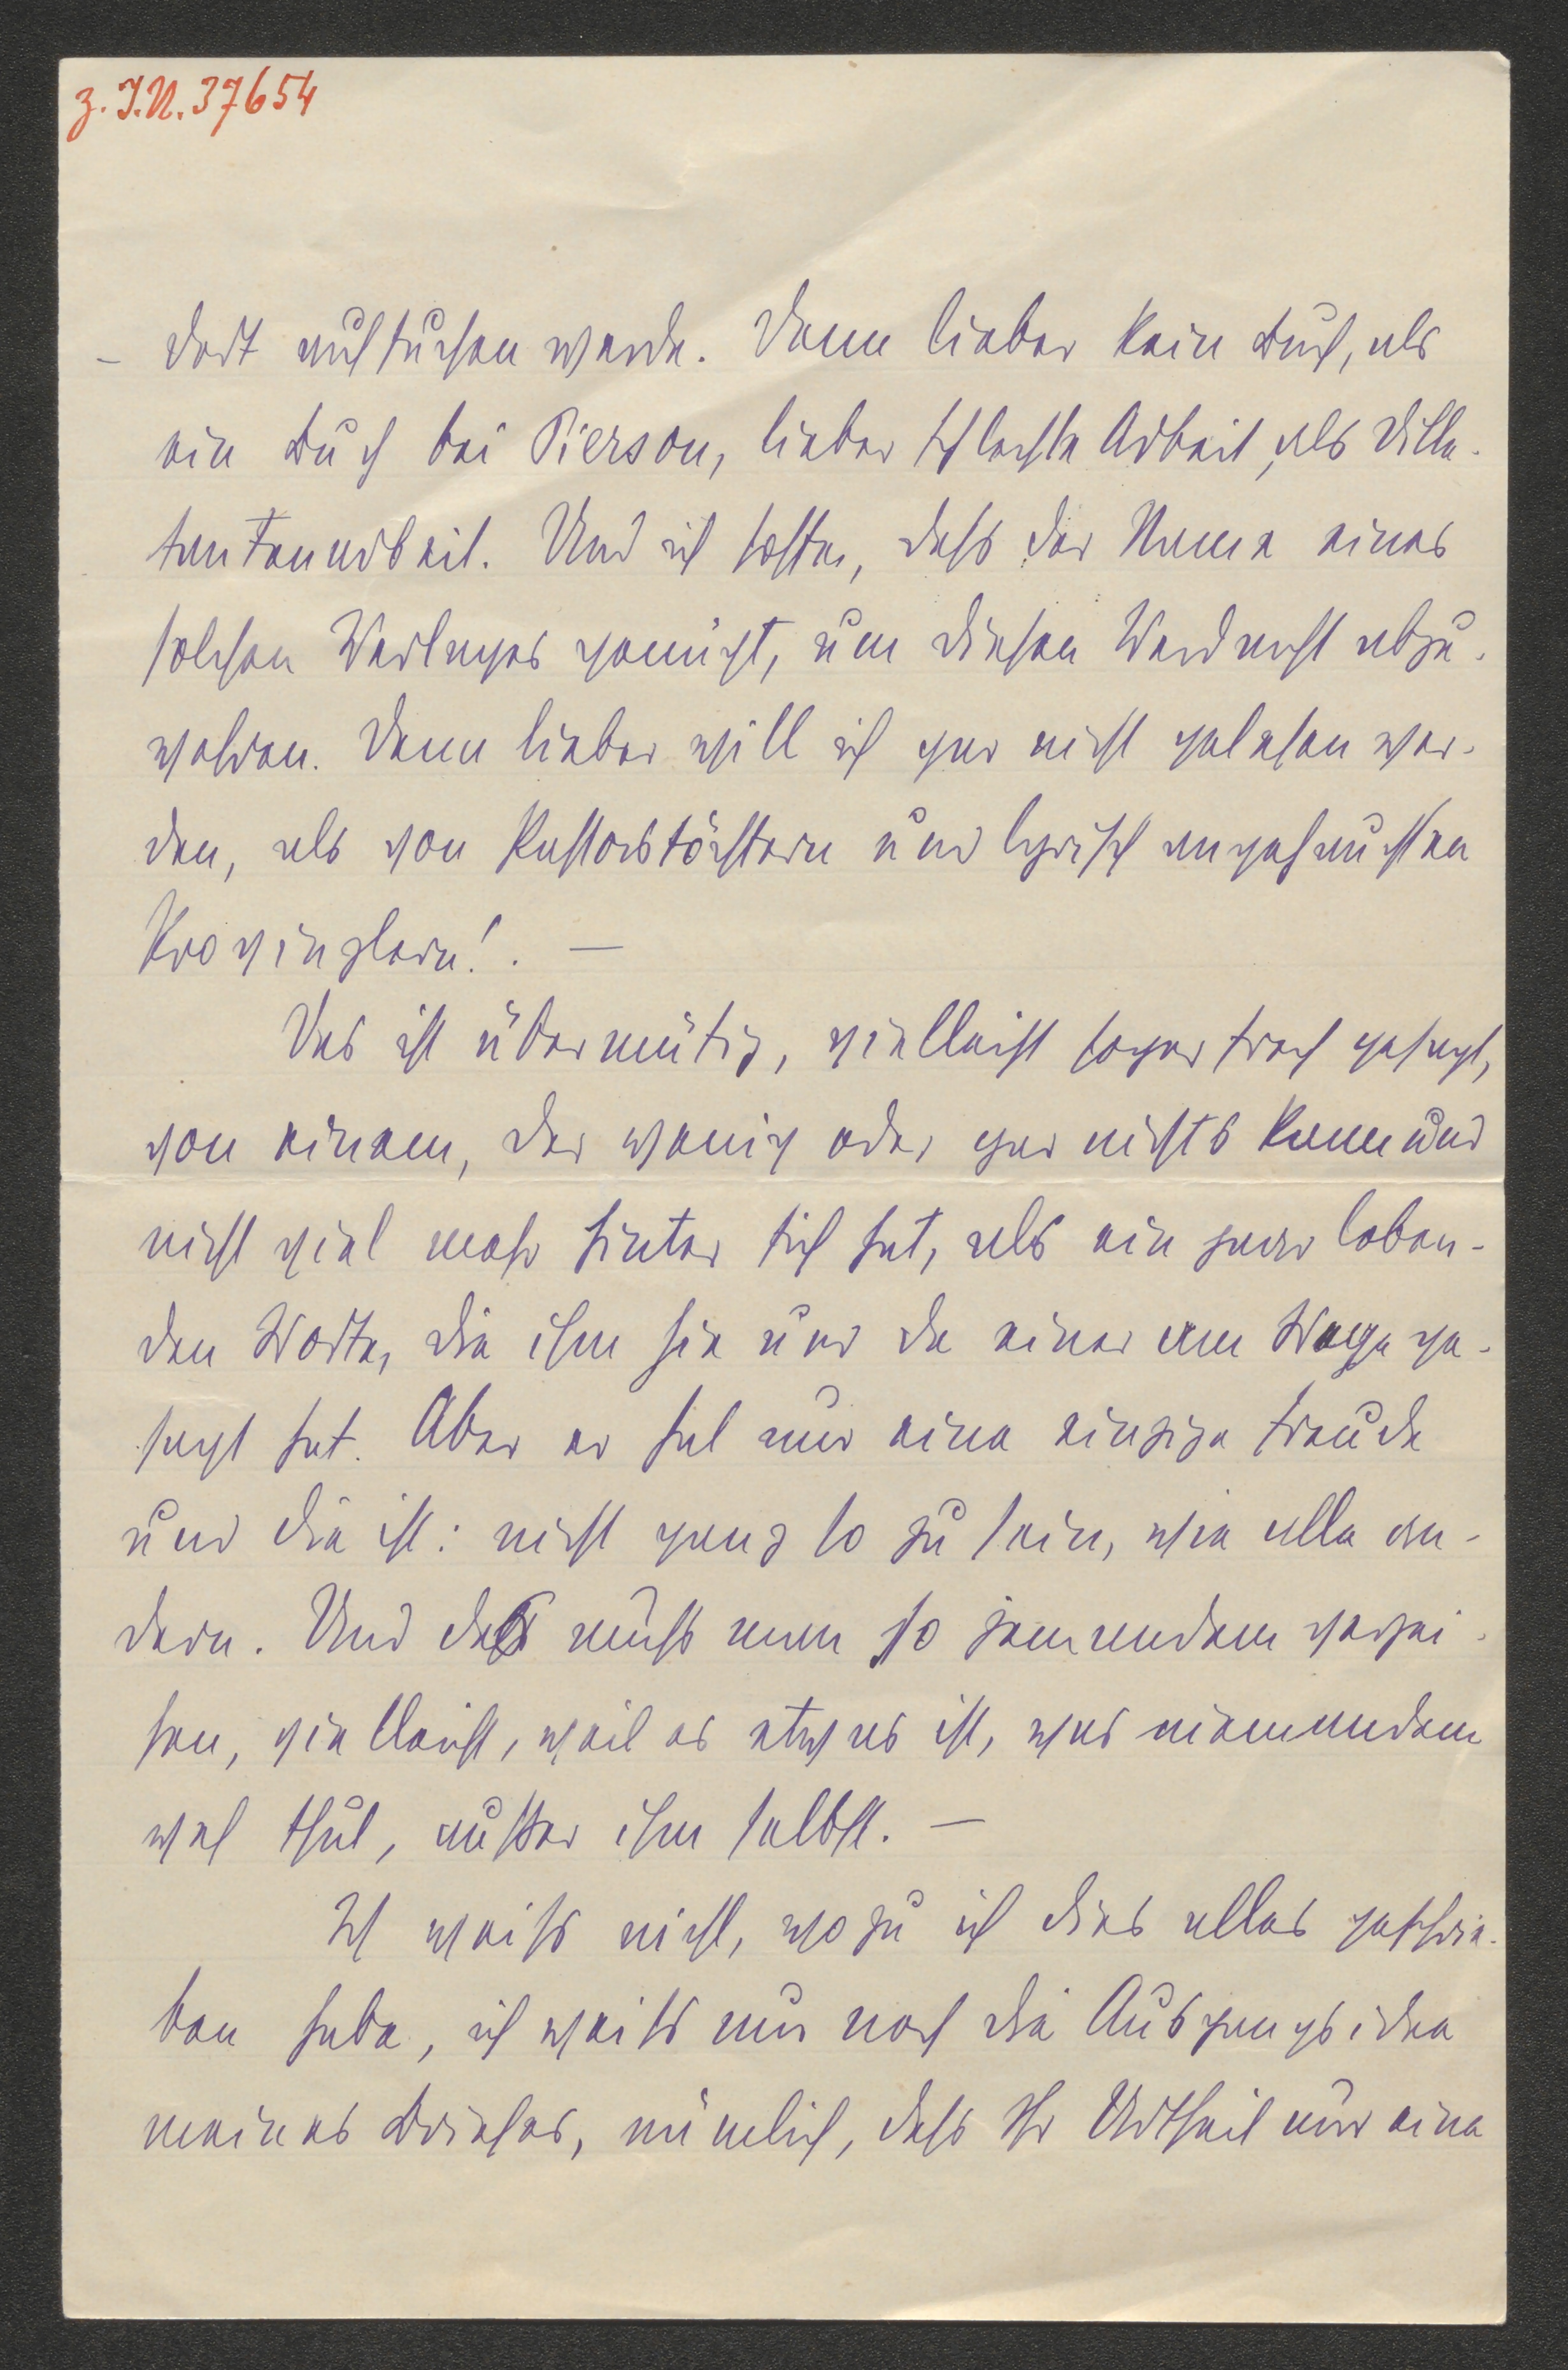 z. I.N. 37654
– dort aufsuchen werde. Denn lieber kein Buch, als
ein Buch bei Pierson, lieber schlechte Arbeit, als Dille-
tantenarbeit. Und ich hoffe, dass der Name eines
solchen Verlages genügt, um diesen Verdacht abzu-
wehren. Denn lieber will ich gar nicht gelesen wer-
den, als von Pastorstöchtern und lyrisch angehauchten
Provinzlern! . –
Das ist übermütig, vielleicht sogar frech gesagt,
von einem, der wenig oder gar nichts kann und
nicht viel mehr hinter sich hat, als ein paar loben-
den Worte, die ihm hie und da einer am Wege ge-
sagt hat. Aber er hat nur eine einzige Freude
und die ist: nicht ganz so zu sein, wie alle an-
dern. Und das muss man so jemandem verzei-
hen, vielleicht, weil es etwas ist, was niemandem
weh thut, ausser ihm selbst. –
Ich weiss nicht, wozu ich dies alles geschrie-
ben habe, ich weiss nur noch die Ausgangsidee
meines Briefes, nämlich, dass Ihr Urtheil nur eine